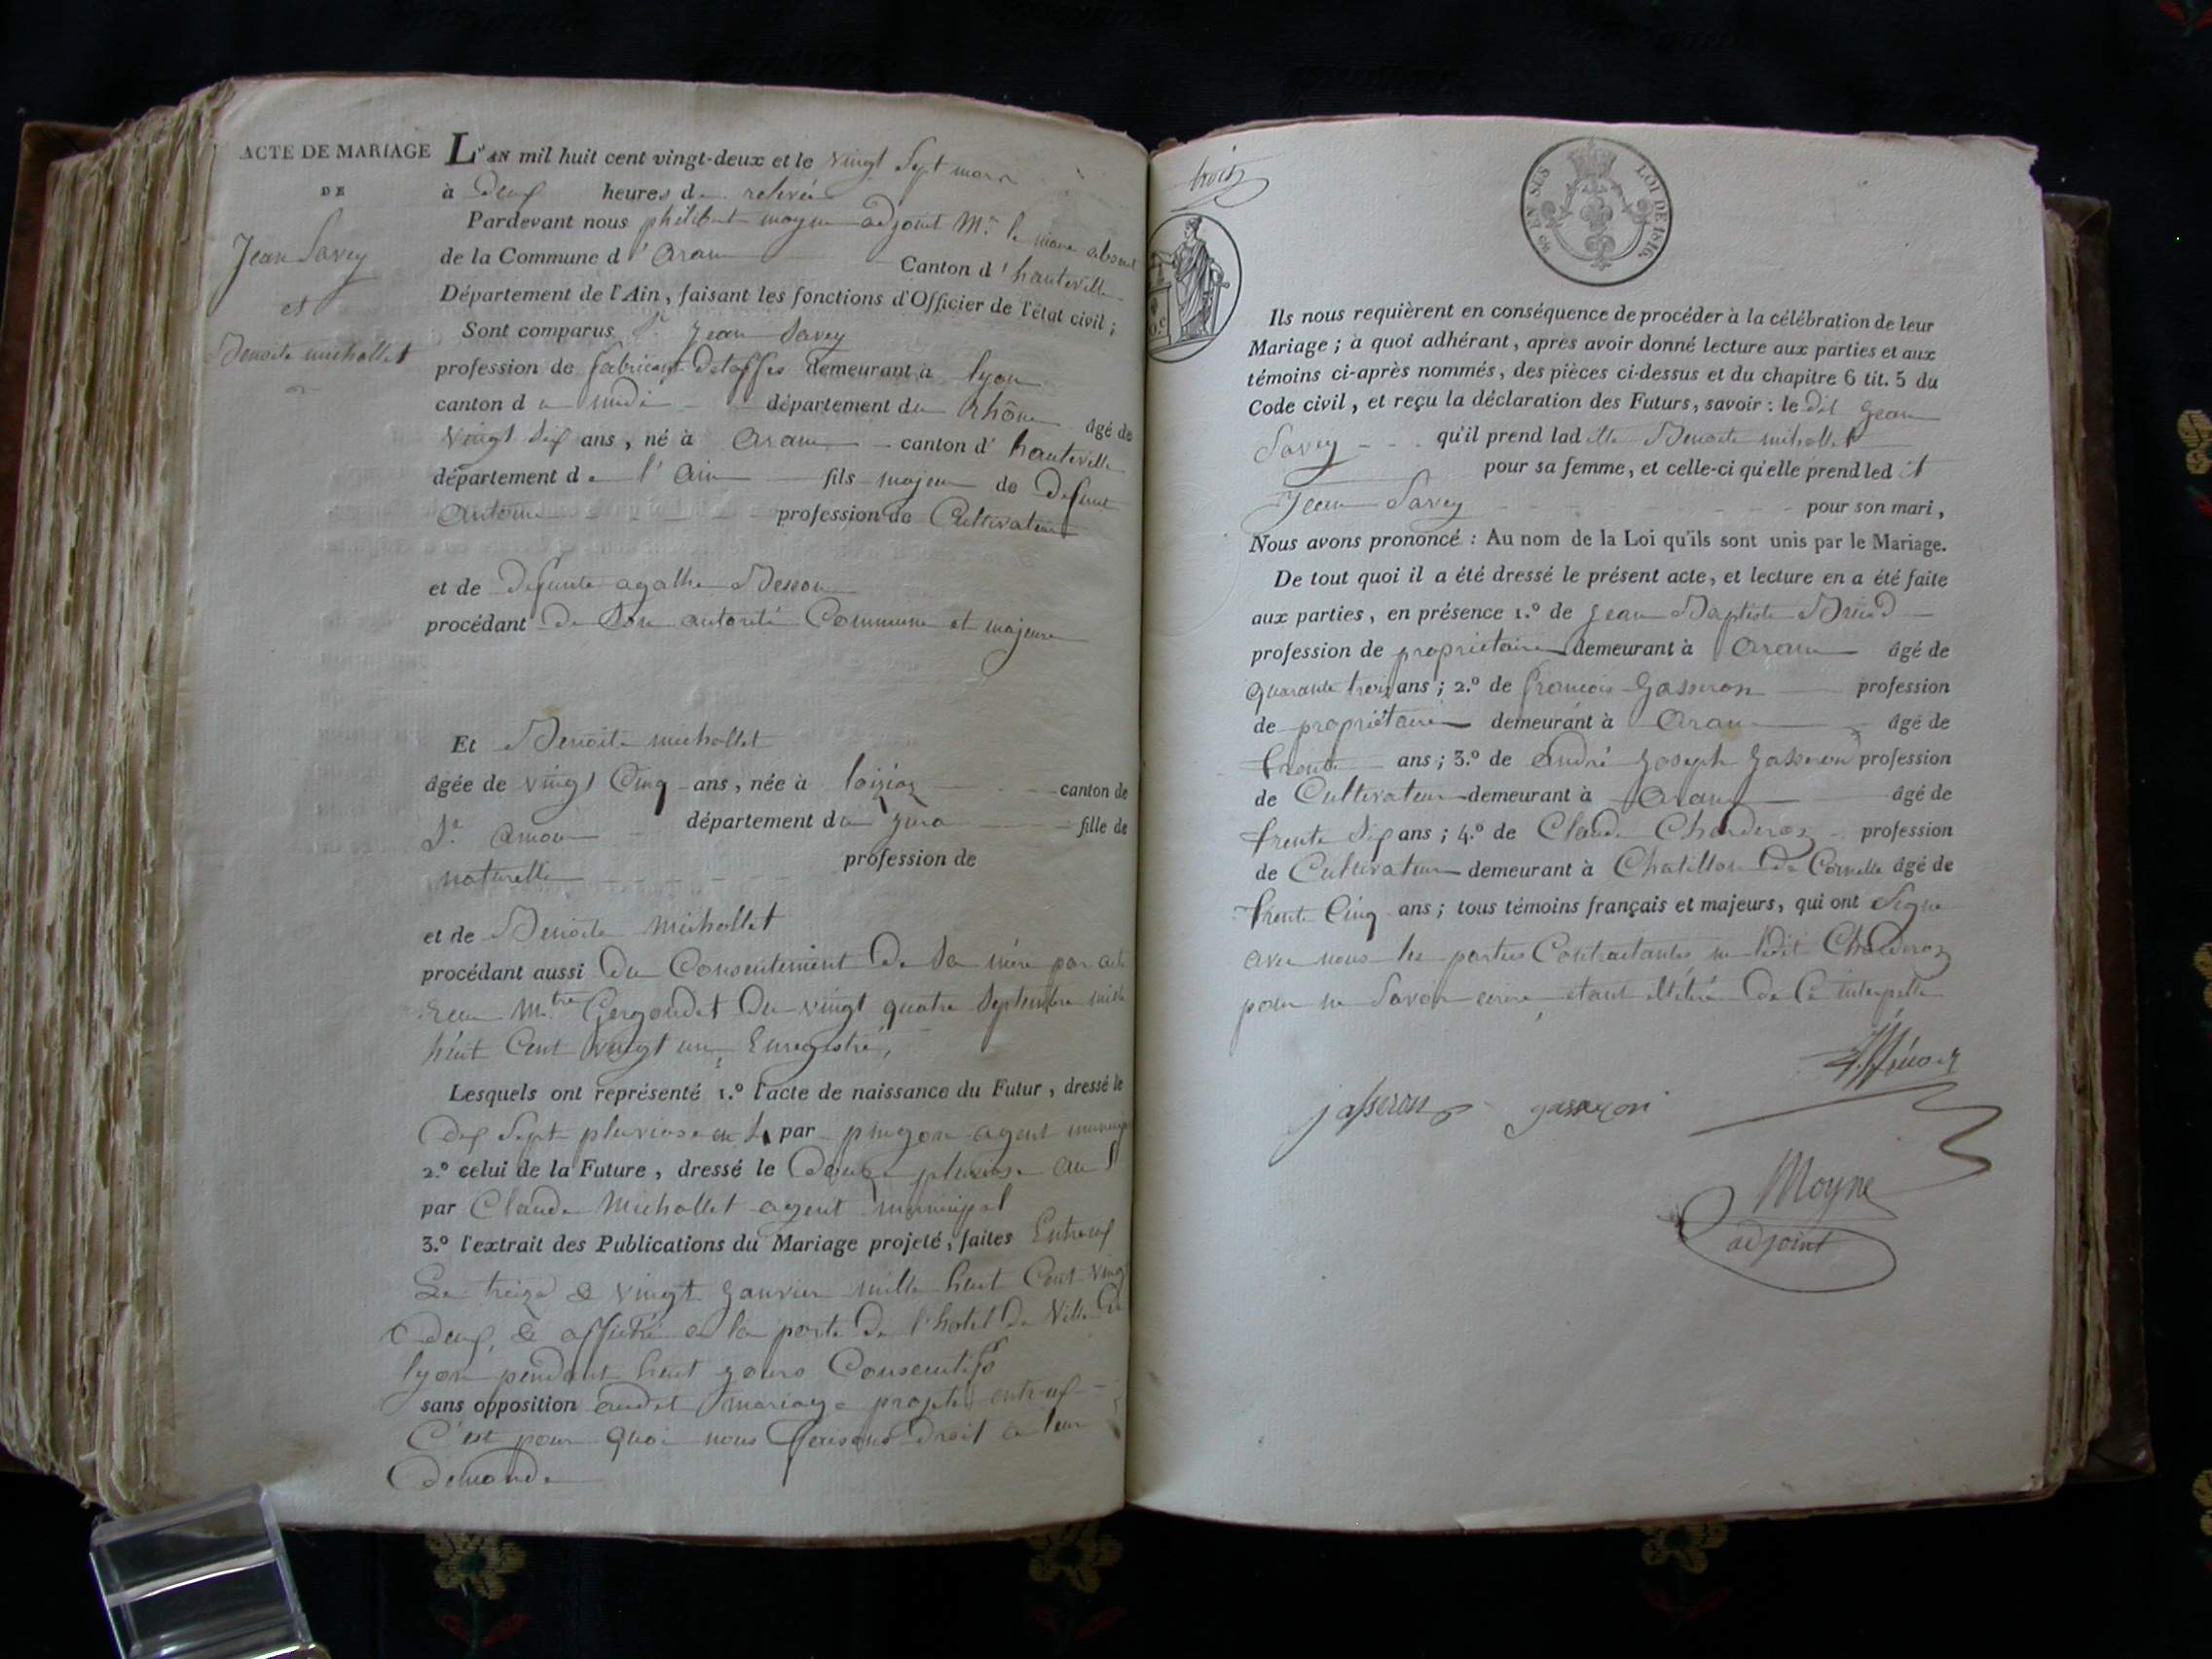 ACTE DE MARIAGE
DE
Jean Savey
et
Benoite michollet
L'AN mil huit cent vingt-deux et le vingt Sept mars
à Deux heures de relevée
Pardevant nous philibert moyne adjoint Mr. le maire absent
de la Commune d'aranc Canton d'hauteville
Département de l'Ain, faisant les fonctions d'Officier de l'état civil;
Sont comparus Sr. Jean Savey
profession de fabricant detoffes demeurant à lyon
canton du midi département du Rhône âgé de
vingt Six ans, né à aranc canton d'hauteville
département de l'ain fils majeur de Defunt
antoine profession de Cultivateur
et de Defunte agathe Besson
procédant De Son autorité Commune et majeure
Et Benoite michollet
âgée de vingt Cinq ans, née à loisiaz canton de
St. amour département du jura fille de
naturelle profession de
et de Benoite michollet
procédant aussi Du Consentement De Sa mère par acte
Reçu Mtre Gergondet Du vingt quatre Septembre mille
huit Cent vingt un, Enregistré,
Lesquels ont représenté 1.º l'acte de naissance du Futur, dressé le
Dix Sept pluviose an 4 par pingon agent municipal
2.º celui de la Future, dressé le Douze pluviose an 5
par Claude Michollet agent municipal
3.º l'extrait des Publications du Mariage projeté, faites Entreux
Le treize & vingt janvier mille huit Cent vingt
deux, & affiché a la porte De l'hotel De Ville De
lyon pendant huit jours Consecutifs
sans opposition audit mariage projeté entreux
C'est pour quoi nous faisons Droit a leur
Demande
trois
68 EN SUS
LOI DE 1816.
Ils nous requièrent en conséquence de procéder à la célébration de leur
Mariage; à quoi adhérant, après avoir donné lecture aux parties et aux
témoins ci-après nommés, des pièces ci-dessus et du chapitre 6 tit. 5 du
Code civil, et reçu la déclaration des Futurs, savoir: le dit Jean
Savey qu'il prend laditte Benoite michollet
pour sa femme, et celle-ci qu'elle prend ledit
Jean Savey pour son mari,
Nous avons prononcé: Au nom de la Loi qu'ils sont unis par le Mariage.
De tout quoi il a été dressé le présent acte, et lecture en a été faite
aux parties, en présence 1.º de Jean Baptiste
profession de proprietaire demeurant à aranc âgé de
quarante trois ans; 2.º de françois Gasseron profession
de propriétaire demeurant à aranc âgé de
trente ans; 3.º de andré Joseph Jasseron profession
de Cultivateur demeurant à aranc âgé de
trente Six ans; 4.º de Claude Charderoz profession
de Cultivateur demeurant à Chatillon De Cornelle âgé de
trente Cinq ans; tous témoins français et majeurs, qui ont Signé
avec nous les parties Contractantes ni ledit Charderoz
pour ne Savoir ecrire, étant illétéré De Ce interpellé
jasseron
gasseron
Moyne
adjoint